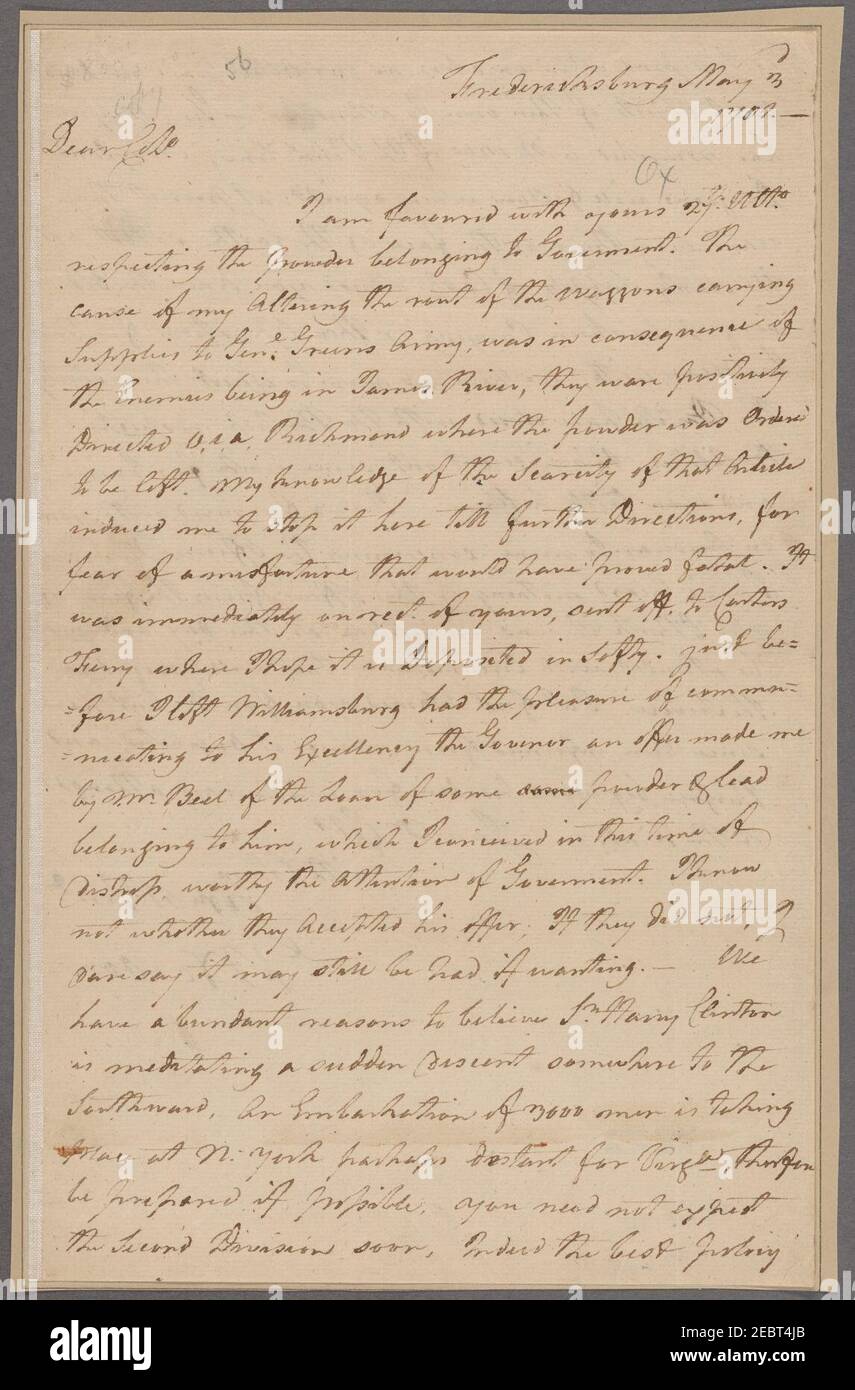 56
Fredericksburg May 3d
Dear Colo.
I am favoured with yours 27. Ulto.
respecting the powder belonging to Goverment. The
cause of my Altering the rout of the Waggons carrying
Supplies to Genl. Greens Army, was in consequence of
the Enemies being in James River, they ware positively
Directed Via, Richmond where the powder was Ordered
to be left. My knowledge of the Scarcity of that Article
induced me to stop it here till further Directions, for
fear of a misfortune that would have proved fatal. It
was immediately on rect. of yours, sent off, to Carters
Ferry where I hope it is Deposited in Safty. just be=
=fore I left Williamsburg had the pleasure of commu=
=nicating to his Excellency the Govenor an offer made me
by Mr. Beel of the Loan of some powder & lead
belonging to him, which I conceived in this time of
Distress, worthy the Attention of Goverment. I know
not whether they Accepted his offer; If they did not, I
Dare say it may still be had if wanting. — We
have abundant reasons to believe Sr. Harry Clinton
is meditating a sudden Descent somewhere to the
Southward, An Embarkation of 3000 men is taking
place at N. York perhaps destant for Virga, therfore
be prepared if possible, you need not expect
the Second Division soon, Indeed the best policy
alamy
Image ID: 2EBT4JB
www.alamy.com